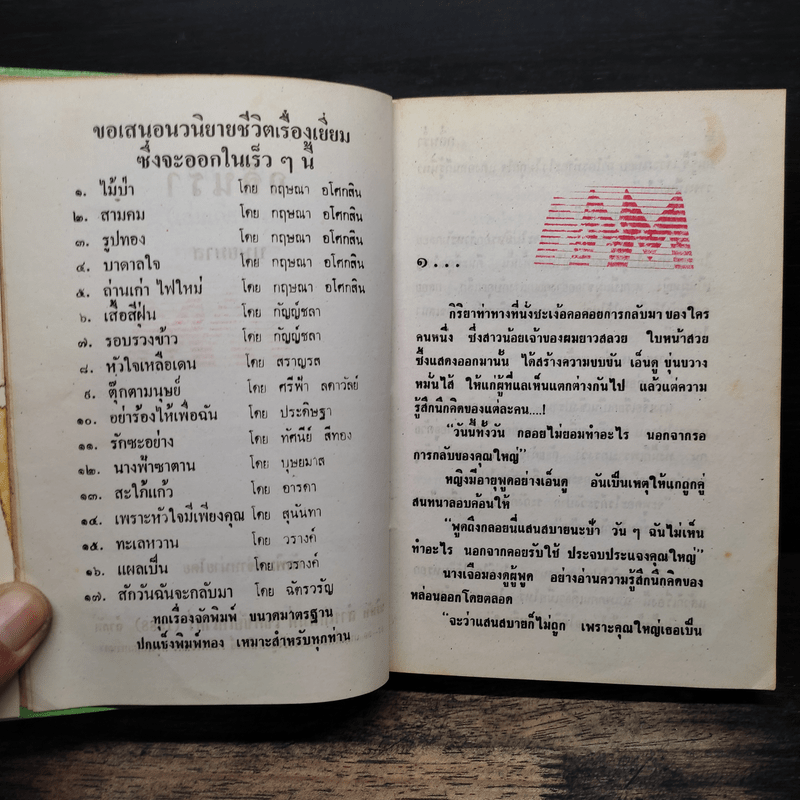 ขอเสนอนวนิยายชีวิตเรื่องเยี่ยม
ซึ่งจะออกในเร็ว ๆ นี้
๑. ไม้ป่า โดย กฤษณา อโศกสิน
๒. สามคม โดย กฤษณา อโศกสิน
๓. รูปทอง โดย กฤษณา อโศกสิน
๔. บาดาลใจ โดย กฤษณา อโศกสิน
๕. ถ่านเก่า ไฟใหม่ โดย กฤษณา อโศกสิน
๖. เสื้อสีฝุ่น โดย กัญญ์ชลา
๗. รอบรวงข้าว โดย กัญญ์ชลา
๘. หัวใจเหลือเดน โดย สราญรส
๙. ตุ๊กตามนุษย์ โดย ศรีฟ้า ลดาวัลย์
๑๐. อย่าร้องไห้เพื่อฉัน โดย ประดิษฐา
๑๑. รักซะอย่าง โดย ทัศนีย์ สีทอง
๑๒. นางฟ้าซาตาน โดย บุษยมาส
๑๓. สะใภ้แก้ว โดย อาริตา
๑๔. เพราะหัวใจมีเพียงคุณ โดย สุนันทา
๑๕. ทะเลหวาน โดย วรางค์
๑๖. แผลเป็น โดย วรางค์
๑๗. สักวันฉันจะกลับมา โดย ฉัตรวรัญ
ทุกเรื่องจัดพิมพ์ ขนาดมาตรฐาน
ปกแข็งพิมพ์ทอง เหมาะสำหรับทุกท่าน
๑...
กิริยาท่าทางที่นั่งชะเง้อคอคอยการกลับมา ของใคร
คนหนึ่ง ซึ่งสาวน้อยเจ้าของผมยาวสลวย ใบหน้าสวย
ซึ้งแสดงออกมานั้น ได้สร้างความขบขัน เอ็นดู ขุ่นขวาง
หมั่นไส้ ให้แก่ผู้ที่แลเห็นแตกต่างกันไป แล้วแต่ความ
รู้สึกนึกคิดของแต่ละคน....!
“วันนี้ทั้งวัน กลอยไม่ยอมทำอะไร นอกจากรอ
การกลับของคุณใหญ่”
หญิงมีอายุพูดอย่างเอ็นดู อันเป็นเหตุให้แกถูกคู่
สนทนาลอบค้อนให้
“พูดถึงกลอยนี่แสนสบายนะป้า วัน ๆ ฉันไม่เห็น
ทำอะไร นอกจากคอยรับใช้ ประจบประแจงคุณใหญ่”
นางเจือมองดูผู้พูด อย่างอ่านความรู้สึกนึกคิดของ
หล่อนออกโดยตลอด
“จะว่าแสนสบายก็ไม่ถูก เพราะคุณใหญ่เธอเป็น